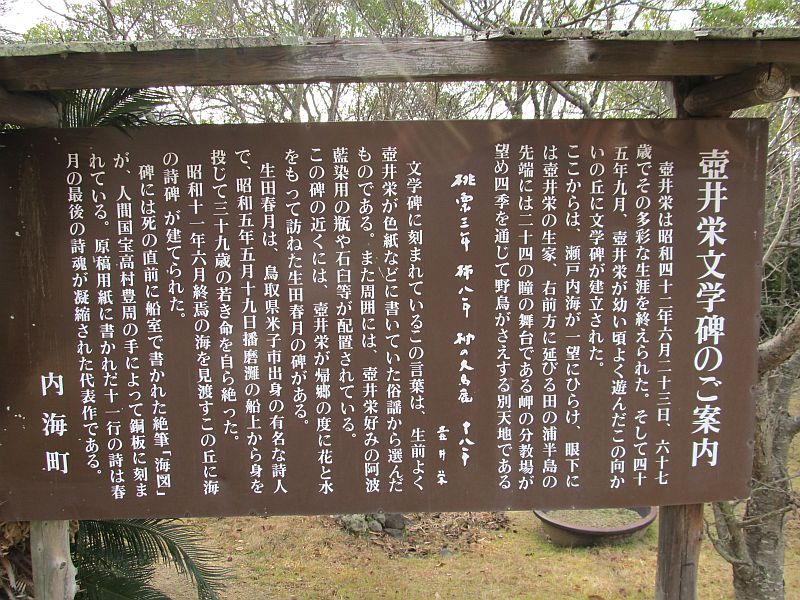 壺井栄文学碑のご案内
壺井栄は昭和四十二年六月二十三日、六十七
歳でその多彩な生涯を終えられた。そして四十
五年九月、壺井栄が幼い頃よく遊んだこの向か
いの丘に文学碑が建立された。
ここからは、瀬戸内海が一望にひらけ、眼下に
は壺井栄の生家、右前方に延びる田の浦半島の
先端には二十四の瞳の舞台である岬の分教場が
望め四季を通じて野鳥がさえする別天地である
桃栗三年 柿八年 柚の大馬鹿 十八年
壺井栄
文学碑に刻まれているこの言葉は、生前よく
壺井栄が色紙などに書いていた俗謡から選んだ
ものである。また周囲には、壺井栄好みの阿波
藍染用の瓶や石臼等が配置されている。
この碑の近くには、壺井栄が帰郷の度に花と水
をもって訪ねた生田春月の碑がある。
生田春月は、鳥取県米子市出身の有名な詩人
で、昭和五年五月十九日播磨灘の船上から身を
投じて三十九歳の若き命を自ら絶った。
昭和十一年六月終焉の海を見渡すこの丘に海
の詩碑が建てられた。
碑には死の直前に船室で書かれた絶筆「海図」
が、人間国宝高村豊周の手によって銅板に刻ま
れている。原稿用紙に書かれた十一行の詩は春
月の最後の詩魂が凝縮された代表作である。
内海町